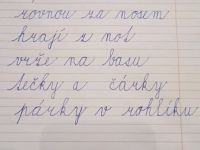 rovnou za nosem
hrají z not
vrže na basu
tečky a čárky
párky v rohlíku